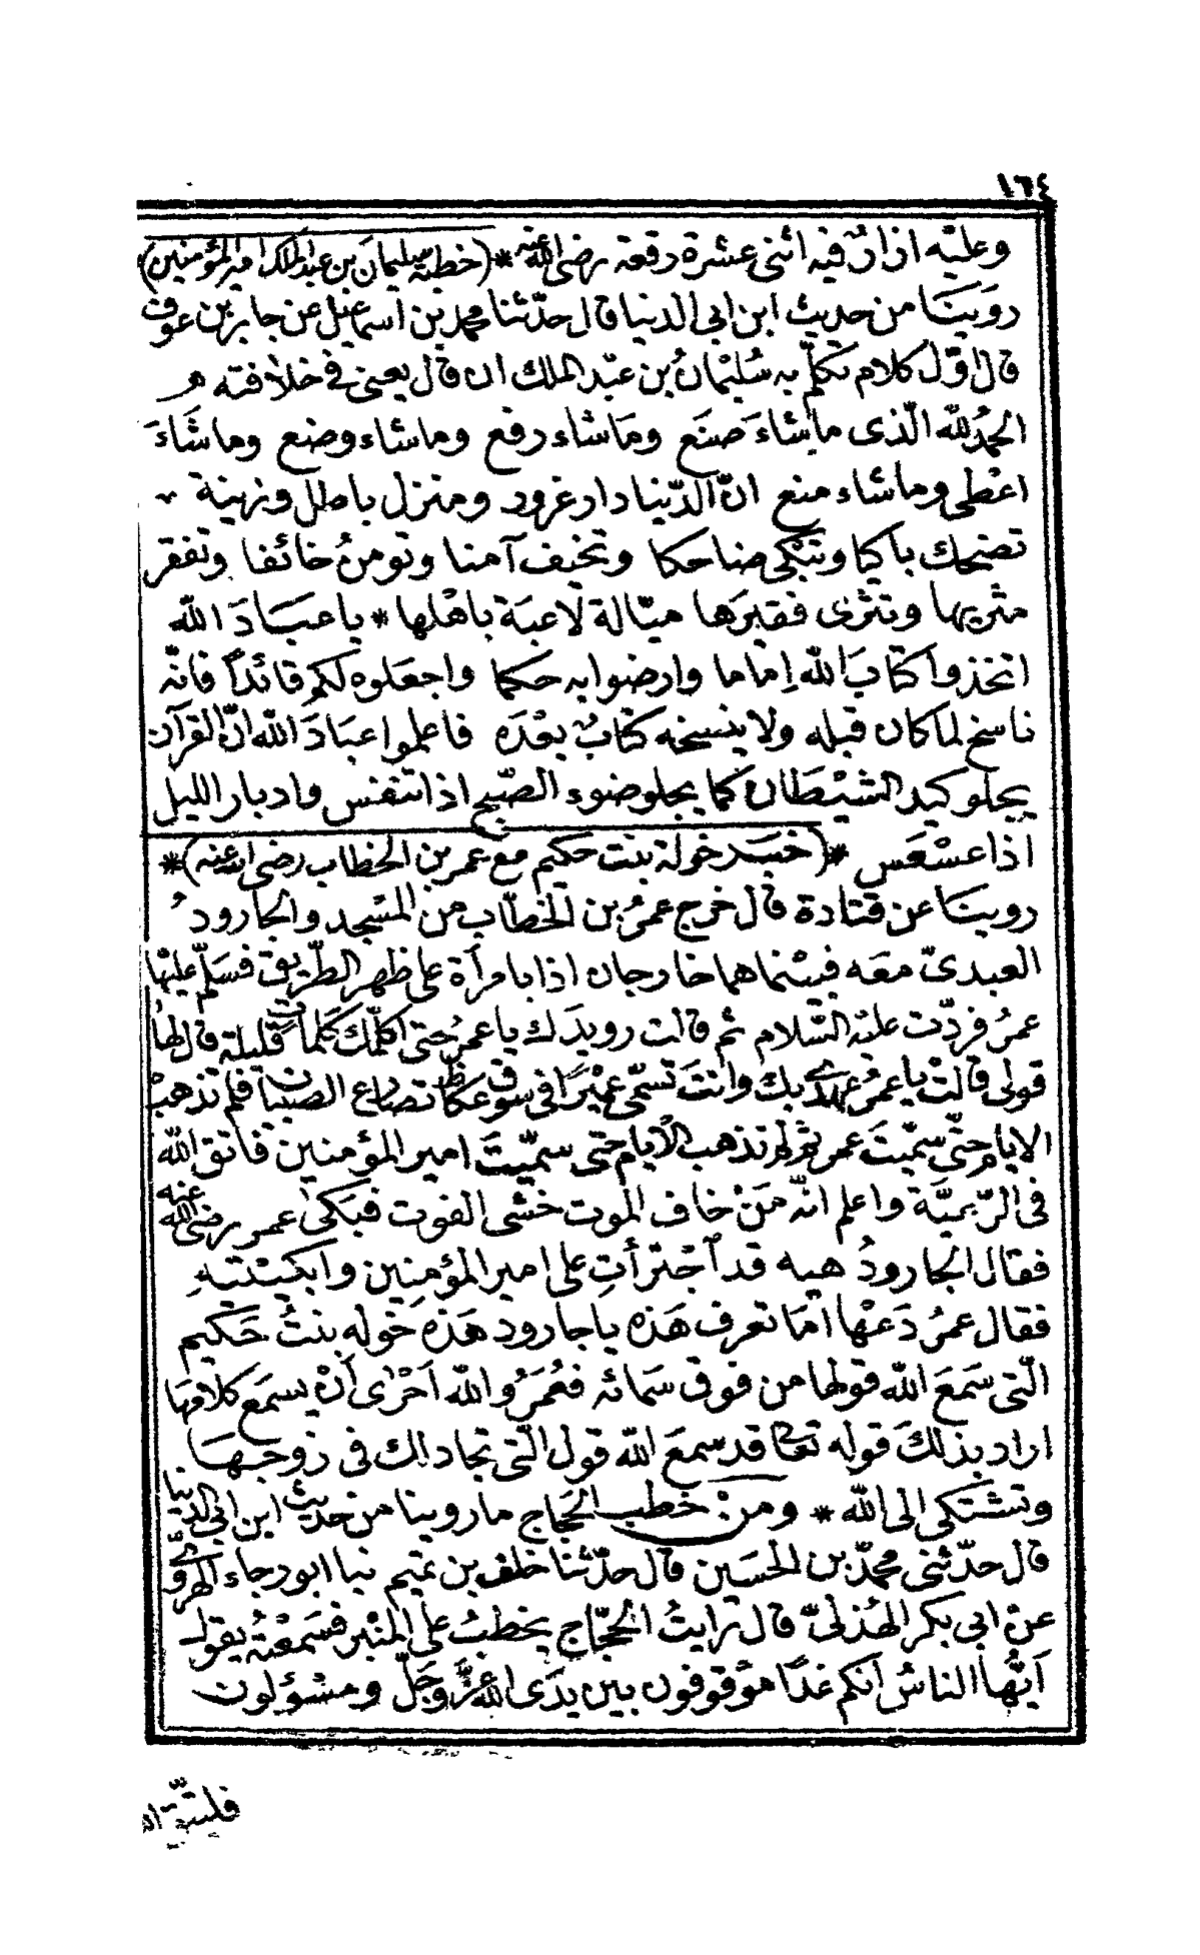 ١٦٤
وعليه ازار فيه اثنى عشرة رقعة رضى الله عنه * (خطبة سليمان بن عبد الملك امير المؤمنين)
روينا من حديث ابن ابى الدنيا قال حدثنا محمد بن اسماعيل عن جابر بن عوف
قال اوّل كلام تكلّم به سُليْمانُ بن عبْد الملك ان قال يعنى فى خلافته
الحمدُ للّه الّذى ما شاءَ صَنَع وَمَا شاء رفع وما شاء وضع وما شَاءَ
اعْطى وما شاء منع انّ الدّنيا دار غرور ومنزل باطل وزينة
تضحك باكيا وتبْكى ضاحكا وتخيف آمنا وتومنُ خائفا وتفقر
مثريها وتثرى فقيرَها ميّالة لاعبَة باهْلها * يا عبَادَ الله
اتخذوا كتابَ اللّه اِماما وارضوا به حكما واجعَلوه لكم قائداً فانّه
ناسخ لما كان قبله ولا ينسخه كتابٌ بعْدَه فاعلموا عبَادَ اللّه انّ القرآن
يجلو كيد الشيْطان كما يجلو ضوء الصّبح اذا تنفس وادبار الليل
اذا عسْعَس * (خبَر خولة بنت حكيم مع عمر بن الخطاب رضى الله عنه) *
روينَا عن قتادة قال خرج عمرُ بن الخطّاب من المسْجد والجارودُ
العبدىّ معَه فبيْنما هما خارجان اذا بامرأة على ظهر الطّريق فسَلّم عليْها
عمرُ فردّت عليْه السّلام ثم قالت رويدَك يا عمرُ حتى اكلّمك كَلماتٍ قليلة قال لها
قولى قالتْ يا عمرُ عهدى بك وانتَ تسمّى عُميْرًا فى سوق عكاظ تصارع الصبيان فلم تذهبْ
الايام حتّى سمّيتَ عمر ثم لم تذهب الأيام حتى سمّيتَ امير المؤمنين فاتق اللّه
فى الرّعيَّة واعلم انّه مَنْ خاف الموت خشى الفوت فبَكى عمر رضى الله عنه
فقال الجارودُ هيه قد اجْترأتِ على امير المؤمنِين وابكيْتيهِ
فقال عمرُ دَعْها امَا تعرف هَذه يا جارود هَذه خوله بنتُ حَكيم
الّتى سَمعَ اللّه قولها من فوق سَمائه فعُمَرُ واللّه اَحْرٰى أنْ يسمَع كلامهَا
اراد بذلكَ قوله تعالى قد سمعَ اللّه قول الّتى تجادلك فى زوجهَا
وتشتكى الى اللّه * ومنْ خطب الحَجاج ما روينا من حديث ابن ابى الدنيا
قال حدّثنى محمّد بن الحسَين قال حدّثنا خلف بن تميم نبا ابو رجاء الهروى
عنْ ابى بكر الهُذلىّ قال رَايتُ الحجّاج يخطبُ على المنْبر فسَمعْتهُ يقول
اَيّهُا الناسُ اَنكم غدًا موْقوفون بين يدَى اللّه عزَّ وَجَلّ ومسْؤلون